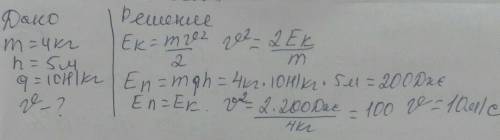 Дано
m = 4кг
h = 5м
g = 10Н/кг
v - ?
Решение
Eк = mv²/2 v² = 2Eк/m
Eп = mgh = 4кг · 10Н/кг · 5м = 200Дж
Eп = Eк. v² = 2·200Дж/4кг = 100 v = 10м/с